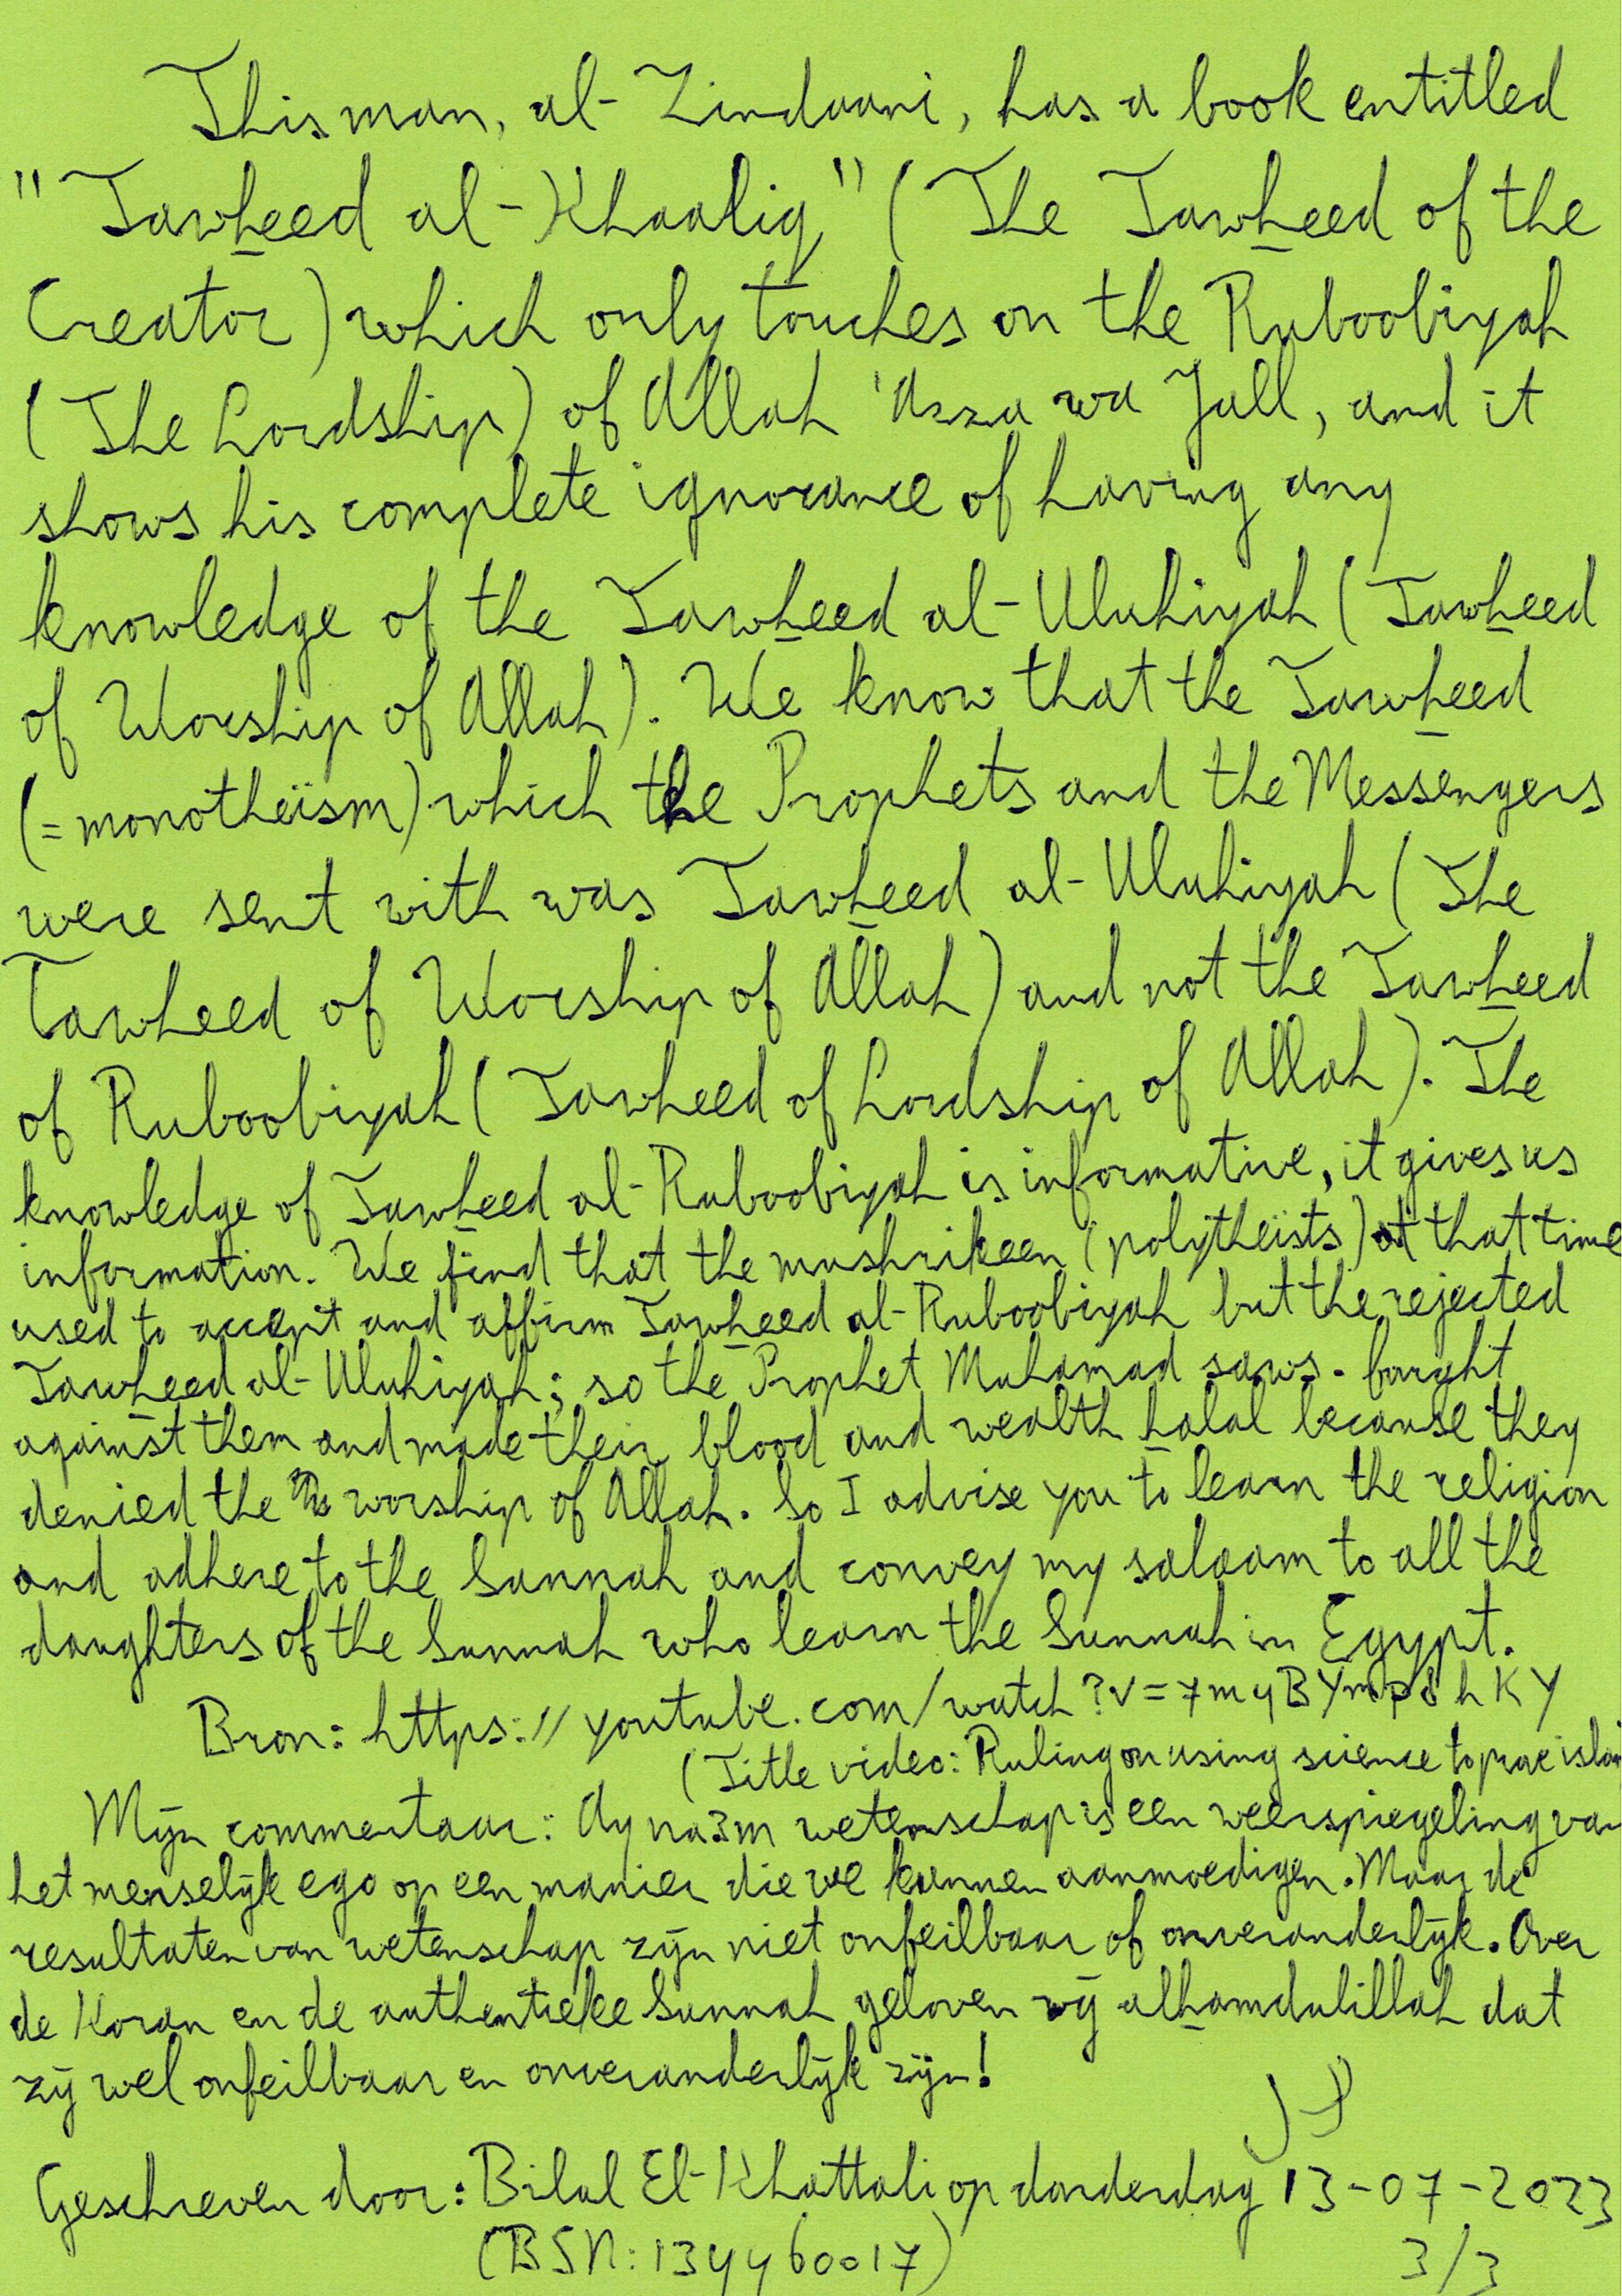 This man, al-Zindaani, has a book entitled
"Tawheed al-Khaaliq" (The Tawheed of the
Creator) which only touches on the Ruboobiyah
(The Lordship) of Allah 'Azza wa Jall, and it
shows his complete ignorance of having any
knowledge of the Tawheed al-Uluhiyah (Tawheed
of Worship of Allah). We know that the Tawheed
(=monotheïsm) which the Prophets and the Messengers
were sent with was Tawheed al-Uluhiyah (The
Tawheed of Worship of Allah) and not the Tawheed
of Ruboobiyah (Tawheed of Lordship of Allah). The
knowledge of Tawheed al-Ruboobiyah is informative, it gives us
information. We find that the mushrikeen (polytheïsts) at that time
used to accept and affirm Tawheed al-Ruboobiyah but the rejected
Tawheed al-Uluhiyah; so the Prophet Muhamad saws. faught
against them and made their blood and wealth halal because they
denied the worship of Allah. So I advise you to learn the religion
and adhere to the Sunnah and convey my salaam to all the
daughters of the Sunnah who learn the Sunnah in Egypt.
Bron: https://youtube.com/watch?v=7myBYmp8hKY
(Title video: Ruling on using science to prove
Mijn commentaar: wetenschap is een weerspiegeling van
het menselijk ego op een manier die we kunnen aanmoedigen. Maar de
resultaten van wetenschap zijn niet onfeilbaar of onveranderlijk. Over
de Koran en de authentieke Sunnah geloven wij alhamdulillah dat
zij wel onfeilbaar en onveranderlijk zijn!
Geschreven door: Bilal El-Khattabi op donderdag 13-07-2023
(BSN: 134460017)
3/3